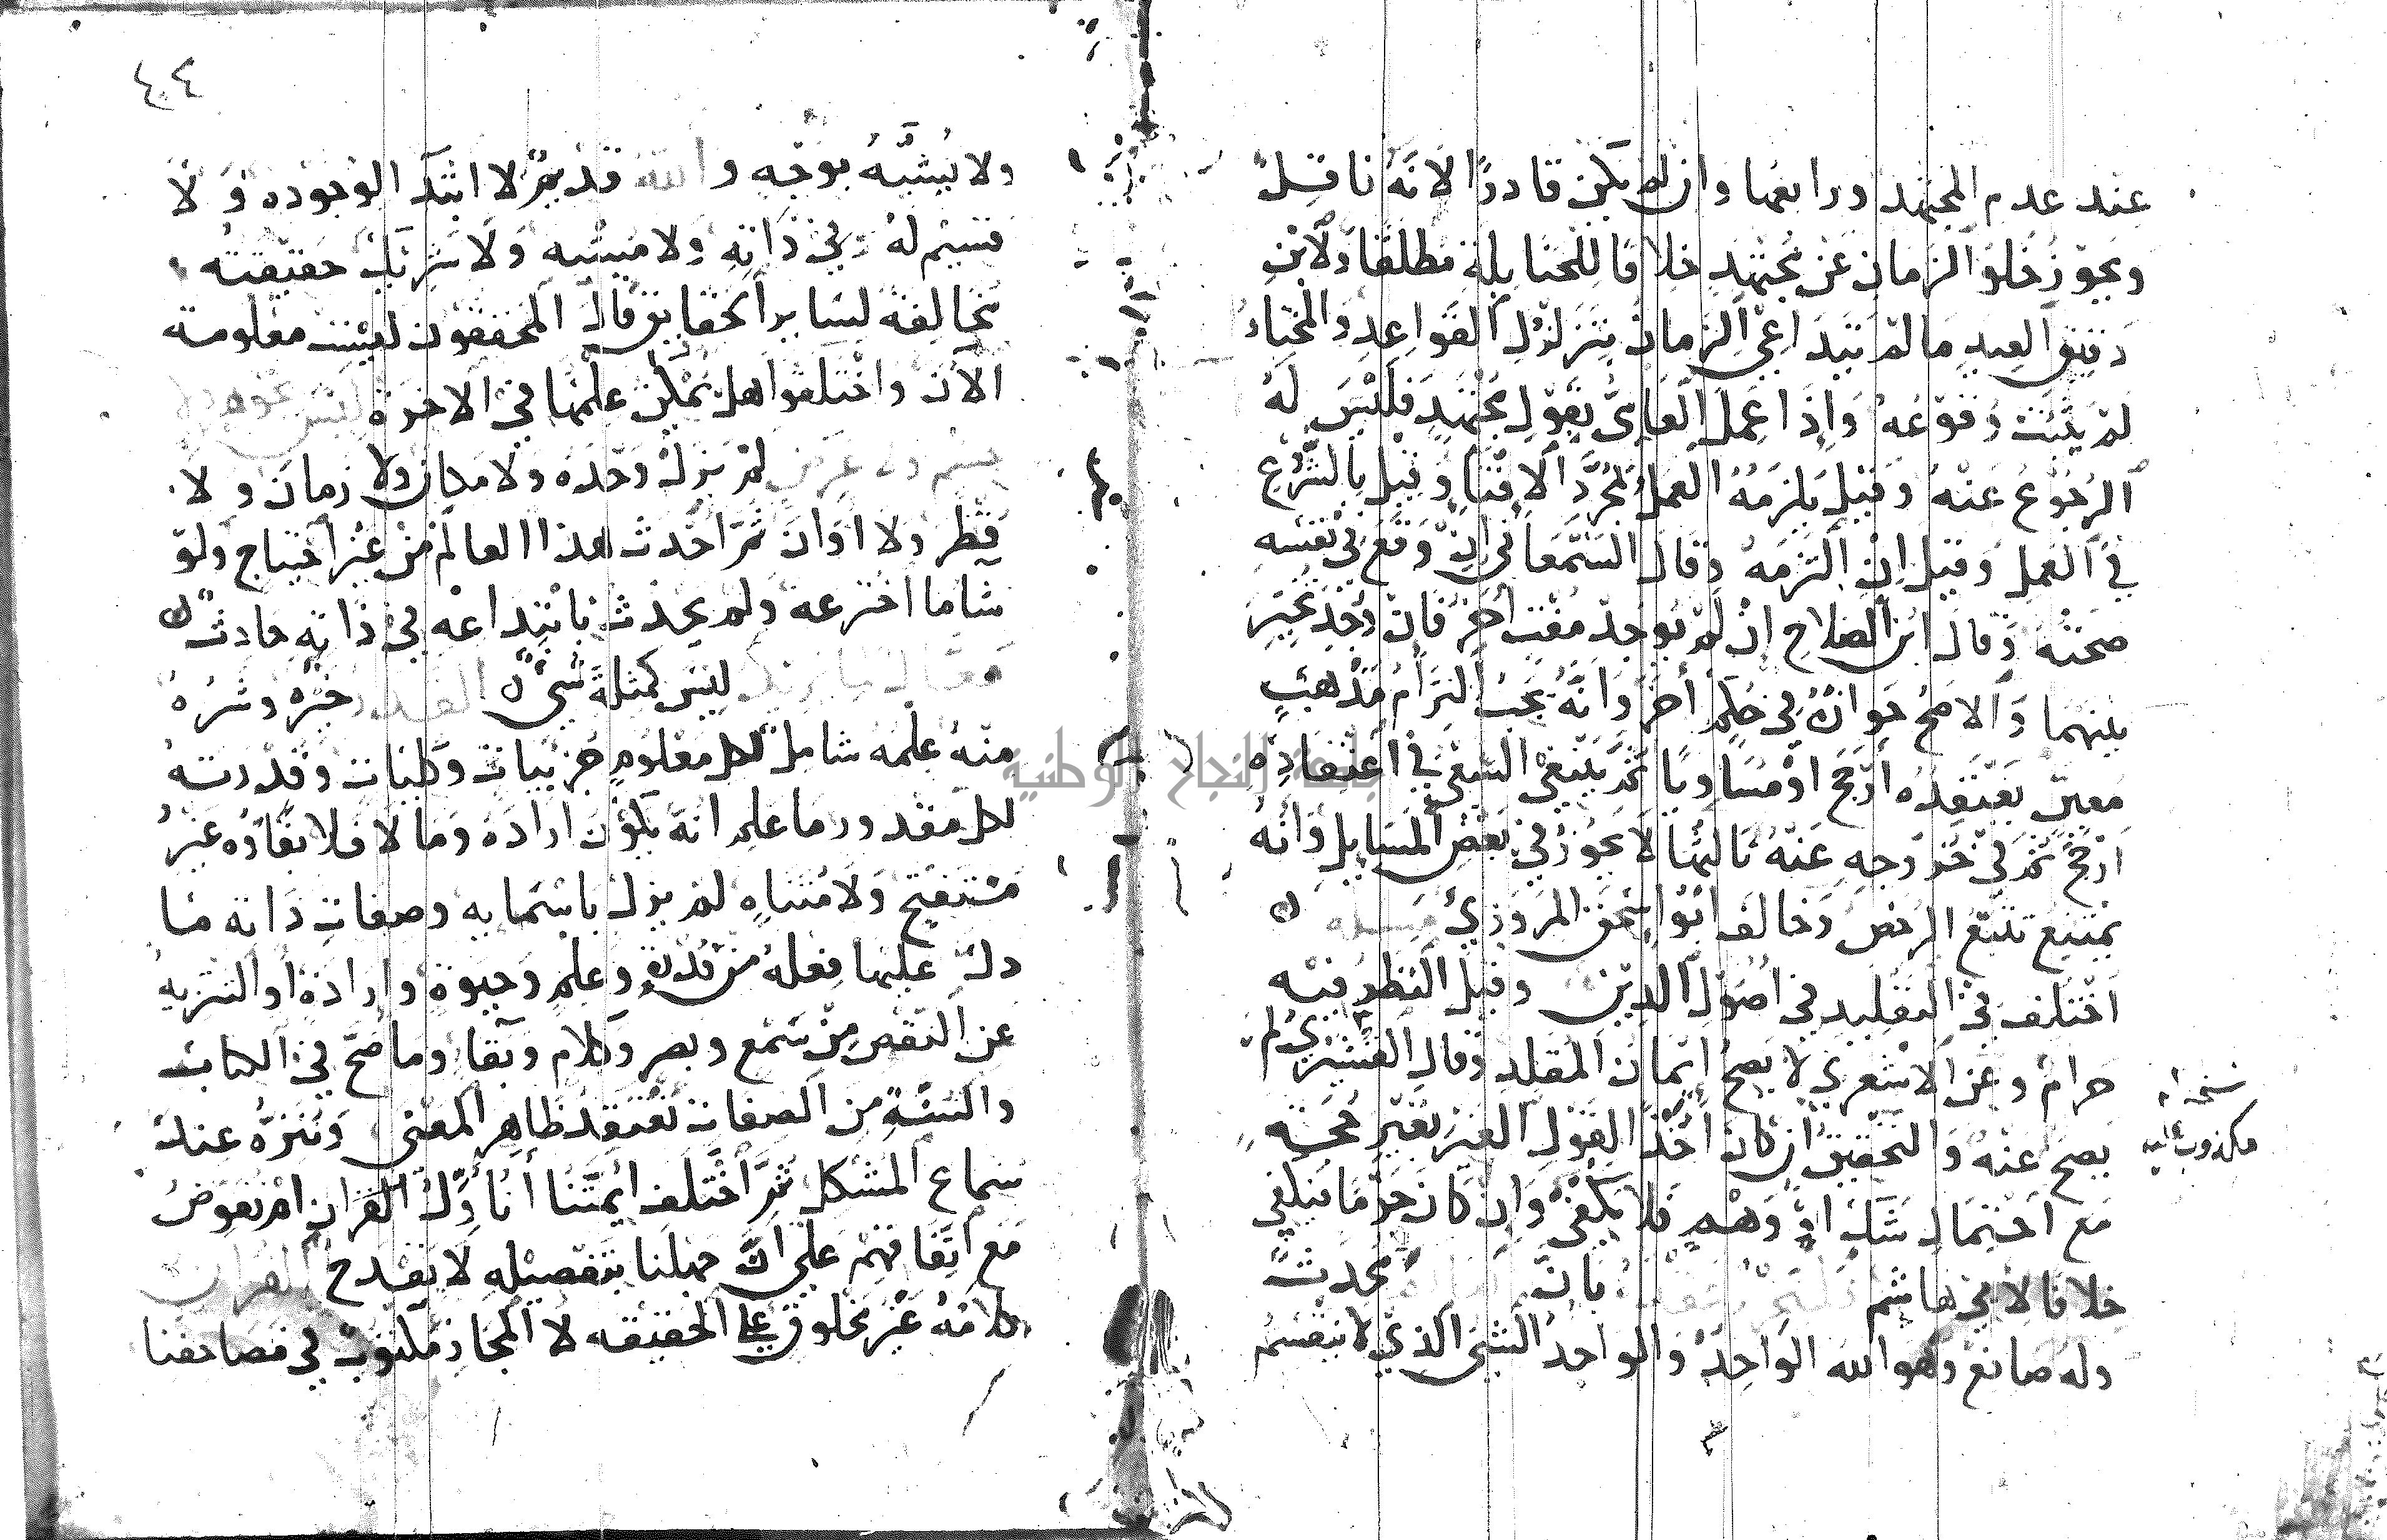 عند عدم المجتهد ورابعها وان لم يكن قادرًا لانه ناقل
ويجوز خلو الزمان عن مجتهد خلافا للحنابلة مطلقا ولابن
دقيق العيد ما لم يتداعى الزمان بتزلزل القواعد والمختار
لم يثبت وقوعه واذا عمل العامي بقول مجتهد فليس له
الرجوع عنه وقيل يلزمه العمل بمجرد الافتاء وقيل بالشروع
في العمل وقيل ان التزمه وقال السمعاني ان وقع في نفسه
صحته وقال ابن الصلاح ان لم يوجد مفت اخر فان وجد تخير
بينهما والاصح جوازه في حكم أخر وانه يجب التزام مذهب
معين يعتقده ارجح او مساويا ثم ينبغي السعي في اعتقاده
ارجح ثم في خروجه عنه ثالثها لا يجوز في بعض المسايل وانه
يمتنع تتبع الرخص وخالف ابو اسحق المروزي مسئله
اختلف في التقليد في اصول الدين وقيل النظر فيه
حرام وعن الاشعري لا يصح ايمان المقلد وقال القشيري لم
يصح عنه والتحقيق ان كان اخذ القول الغير بغير حجة
مع احتمال شك او وهم فلا يكفي وان كان جزما فيكفي
خلافا لابي هاشم فليجزم عقده بان العالم محدث
وله صانع وهو الله الواحد والواحد الشي الذي لا ينقسم
نسخه
مكذوب عليه
٤٠٤
ولا يشبه بوجه والله قديم لا ابتدا لوجوده ولا
قسيم له في ذاته ولا شبيه ولا شريك حقيقته
مخالفة لساير الحقايق قال المحققون ليست معلومة
الآن واختلفوا هل يمكن علمها في الاخرة ليس بجوهر ولا
جسم ولا عرض لم يزل وحده ولا مكان ولا زمان ولا
قطر ولا اوان ثم احدث هذا العالم من غير احتياج ولو
شا ما اخترعه ولم يحدث بابتداعه في ذاته حادث
فعال لما يريد ليس كمثله شي القدر خيره وشره
منه علمه شامل لكل معلوم جزييات وكليات وقدرته
لكل مقدور ما علم انه يكون اراده وما لا فلا بقاؤه غير
مستفتح ولا متناه لم يزل باسمايه وصفات ذاته ما
دل عليها فعله من قدرة وعلم وحيوة وارادة أو التنزيه
عن النقص من سمع وبصر وكلام وبقا وما صح في الكتاب
والسنة من الصفات نعتقد ظاهر المعنى وننزه عند
سماع المشكل ثم اختلف ايمتنا أنأول القران ام نفوض
مع اتفاقهم على ان جهلنا بتفصيله لا يقدح القران
كلامه غير مخلوق على الحقيقه لا المجاز مكتوب في مصاحفنا